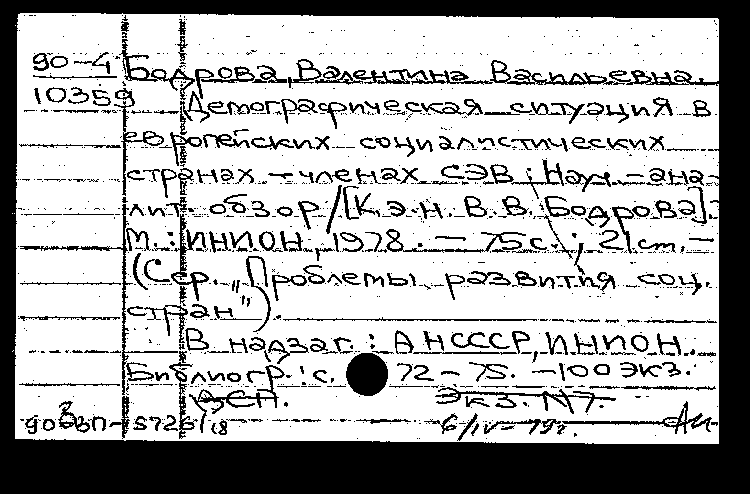 90-4 Бодрова, Валентина Васильевна.
10359 Демографическая ситуация в
европейских социалистических
странах - членах СЭВ : Науч. - ана-
лит. обзор / [К. э. н. В. В. Бодрова]. -
М. : ИНИОН, 1978. - 75 с. ; 21 см. -
(Сер. "Проблемы развития соц.
стран").
В надзаг. : АН СССР, ИНИОН.
Библиогр. : с. 72 - 75. - 100 экз.
СП. Экз. №7.
6/IV - 79г.